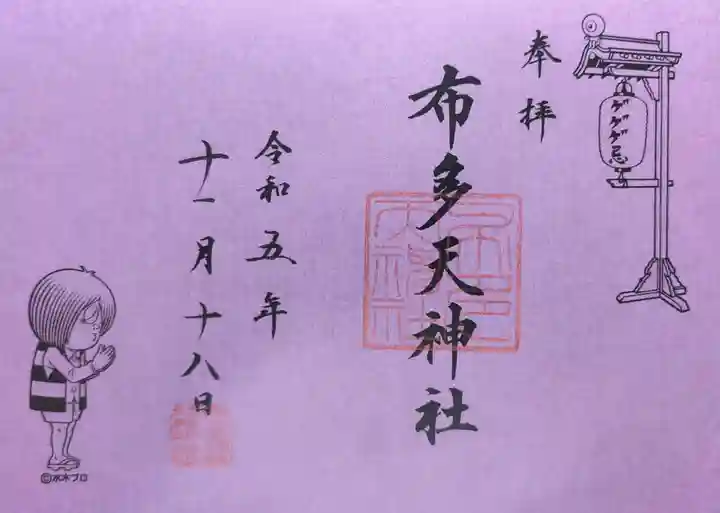 奉拝
ゲゲゲ忌
布多天神社
令和五年
十一月十八日
©水木プロ